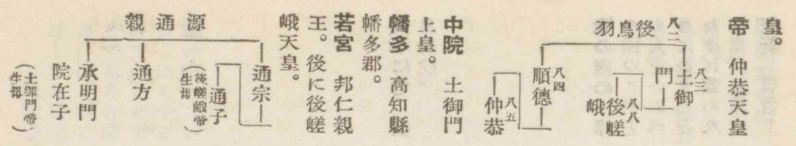 皇。
帝 仲恭天皇
八二
後鳥羽
八三
土御門
八八
後嵯峨
八四
順徳
八五
仲恭
中院 土御門
上皇。
幡多 に高知縣
幡多郡。
若宮 邦仁親
王。後に後嵯
峨天皇。
源通親
通宗
通子
(後嵯峨帝生母)
通方
承明門院在子
(土御門帝生母)